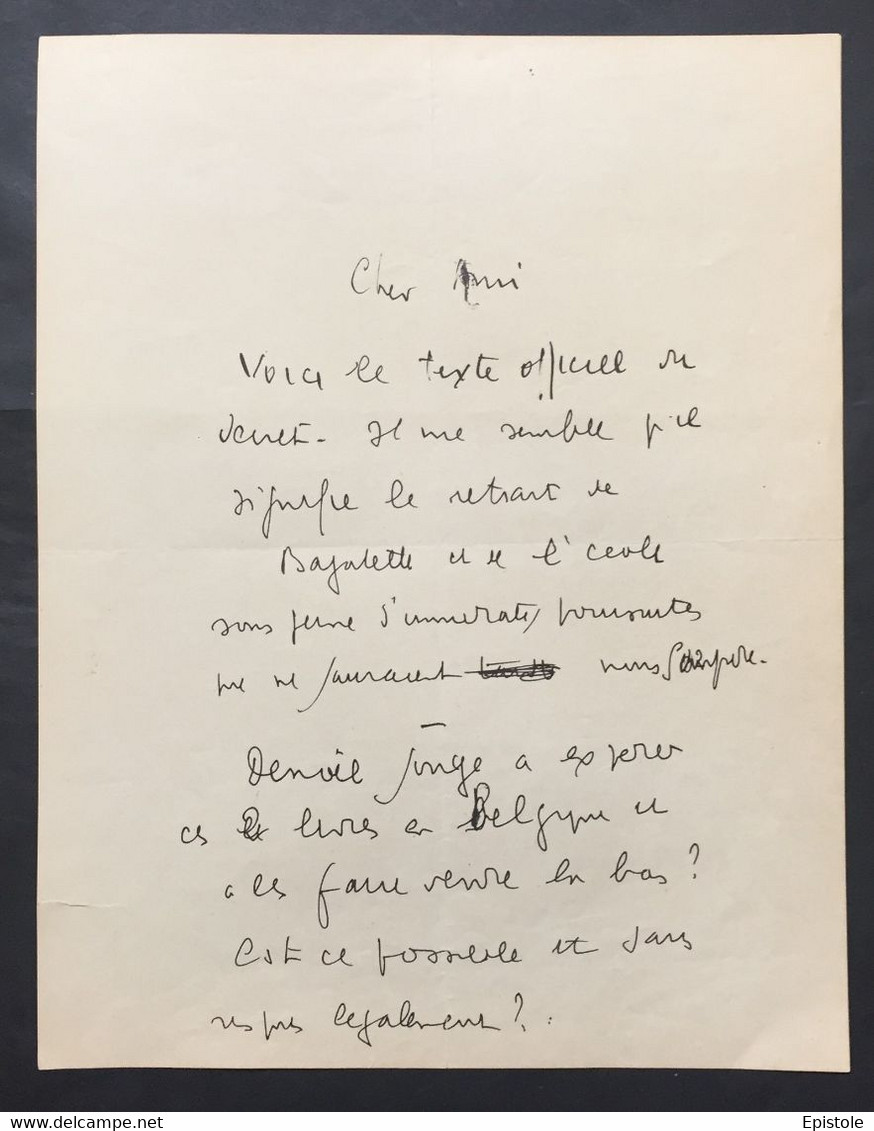 Cher Ami
Voici le texte officiel du
décret. Il me semble qu'il
signifie le retrait de
Bagatelle et de l'école
sous peine d'immédiates poursuites
que ne sauraient nous
Denoël songe a exporer
ces livres en Belgique et
a les faire vendre là bas?
Est ce possible et sans
risques légalement?.
www.delcampe.net
Epistole